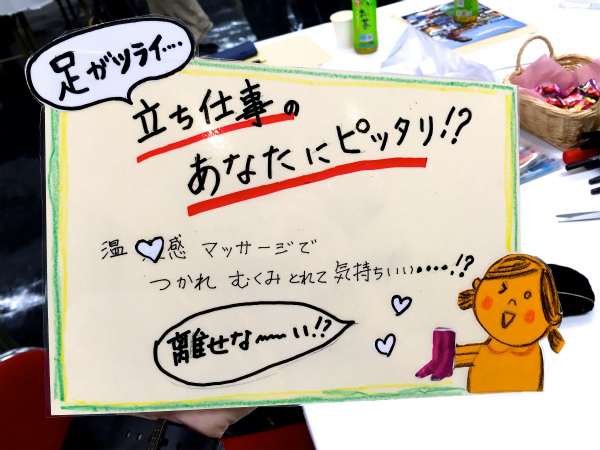 足がツライ....
立ち仕事の
あなたにピッタリ!?
温♡感 マッサージで
つかれ むくみとれて気持ちいい・・・・・!?
離せな〜〜い!?